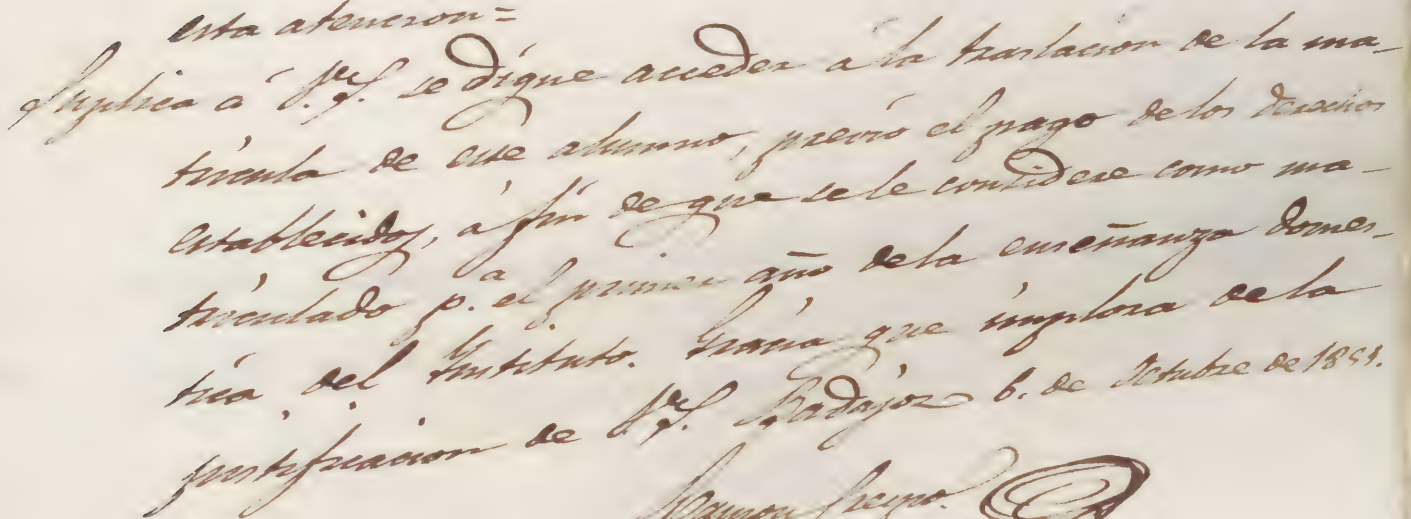 esta atencion=
Suplica á V.S. se digne acceder a la traslacion de la ma-
tricula de ese alumno, previo el pago de los derechos
establecidos, á fin de que se le considere como ma-
triculado p.a el primer año dela enseñanza domes-
tica del Instituto. Gracia que implora de la
justificacion de V.S. Badajoz 6. de Octubre de
Ramon